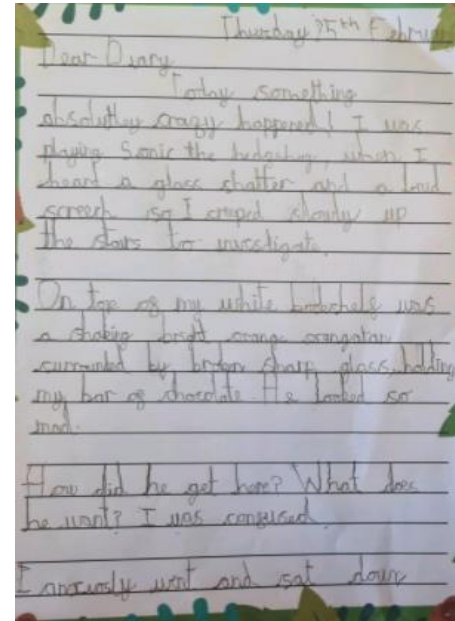 Thursday 25th Februar
Dear Diary
Today something
absolutley crazy happened! I was
playing Sonic the hedgehog, when I
heard a glass shatter and a loud
screech so I creped slowly up
the stairs to investigate.
On top of my white bookshelf was
a shaking bright orange orangatan
surrounded by broken sharp glass, holding
my bar of chocolate. He looked so
mad.
How did he get here? What does
he want? I was confused.
I anxiously went and sat down